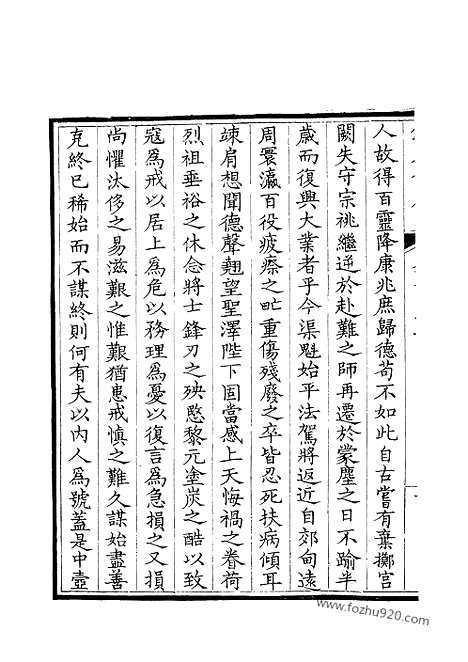 人故得百靈降康兆庶歸德苟不如此自古嘗有棄擲宮
闕失守宗祧繼迹於赴難之師再遷於蒙塵之日不踰半
歲而復興大業者乎今渠魁始平法駕將返近自郊甸遠
周寰瀛百役疲瘵之甿重傷殘廢之卒皆忍死扶病傾耳
竦肩想聞德聲翹望聖澤陛下固當感上天悔禍之眷荷
烈祖垂裕之休念將士鋒刃之殃愍黎元塗炭之酷以致
寇爲戒以居上爲危以務理爲憂以復言爲急損之又損
尚懼汰侈之易滋艱之惟艱猶患戒慎之難久謀始盡善
克終已稀始而不謀終則何有夫以内人爲號蓋是中壼
www.fozhu920.com